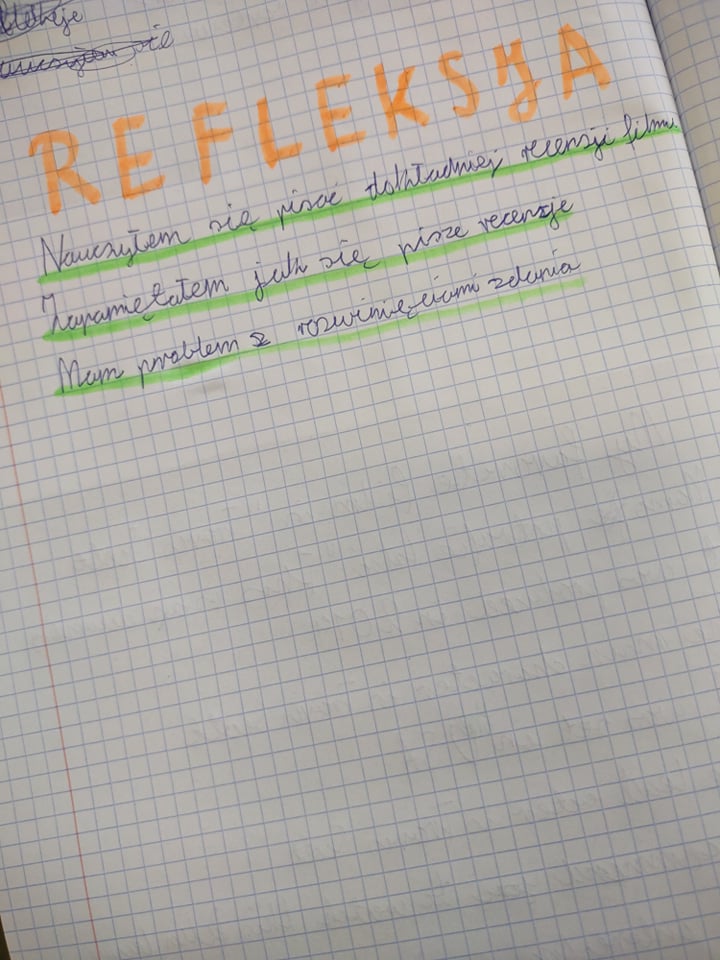 się
REFLEKSJA
Nauczyłem się pisać dokładniej recenzji filmu.
Zapamiętałem jak się pisze recenzje
Mam problem z rozwinięciami zdania